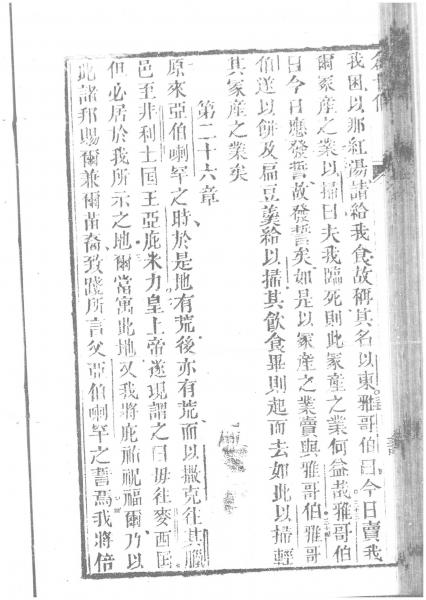 我困以那紅湯請給我食故稱其名以東雅哥伯曰今日賣我
爾冢產之業以掃曰夫我臨死則此冢產之業何益哉雅哥伯
曰今日應發誓故發誓矣如是以冢產之業賣與雅哥伯雅哥
伯遂以餅及扁豆羹給以掃其飲食畢則起而去如此以掃輕
其冢產之業矣
第二十六章
原來亞伯喇罕之時於是地有荒後亦有荒而以撒克往其臘
邑至非利士国王亞庇米力皇上帝遂現謂之曰毋往麥西国
但必居於我所示之地爾當寓此地又我將庇祐祝福爾乃以
此諸邦賜爾兼爾苗裔致踐所言父亞伯喇罕之誓焉我將倍